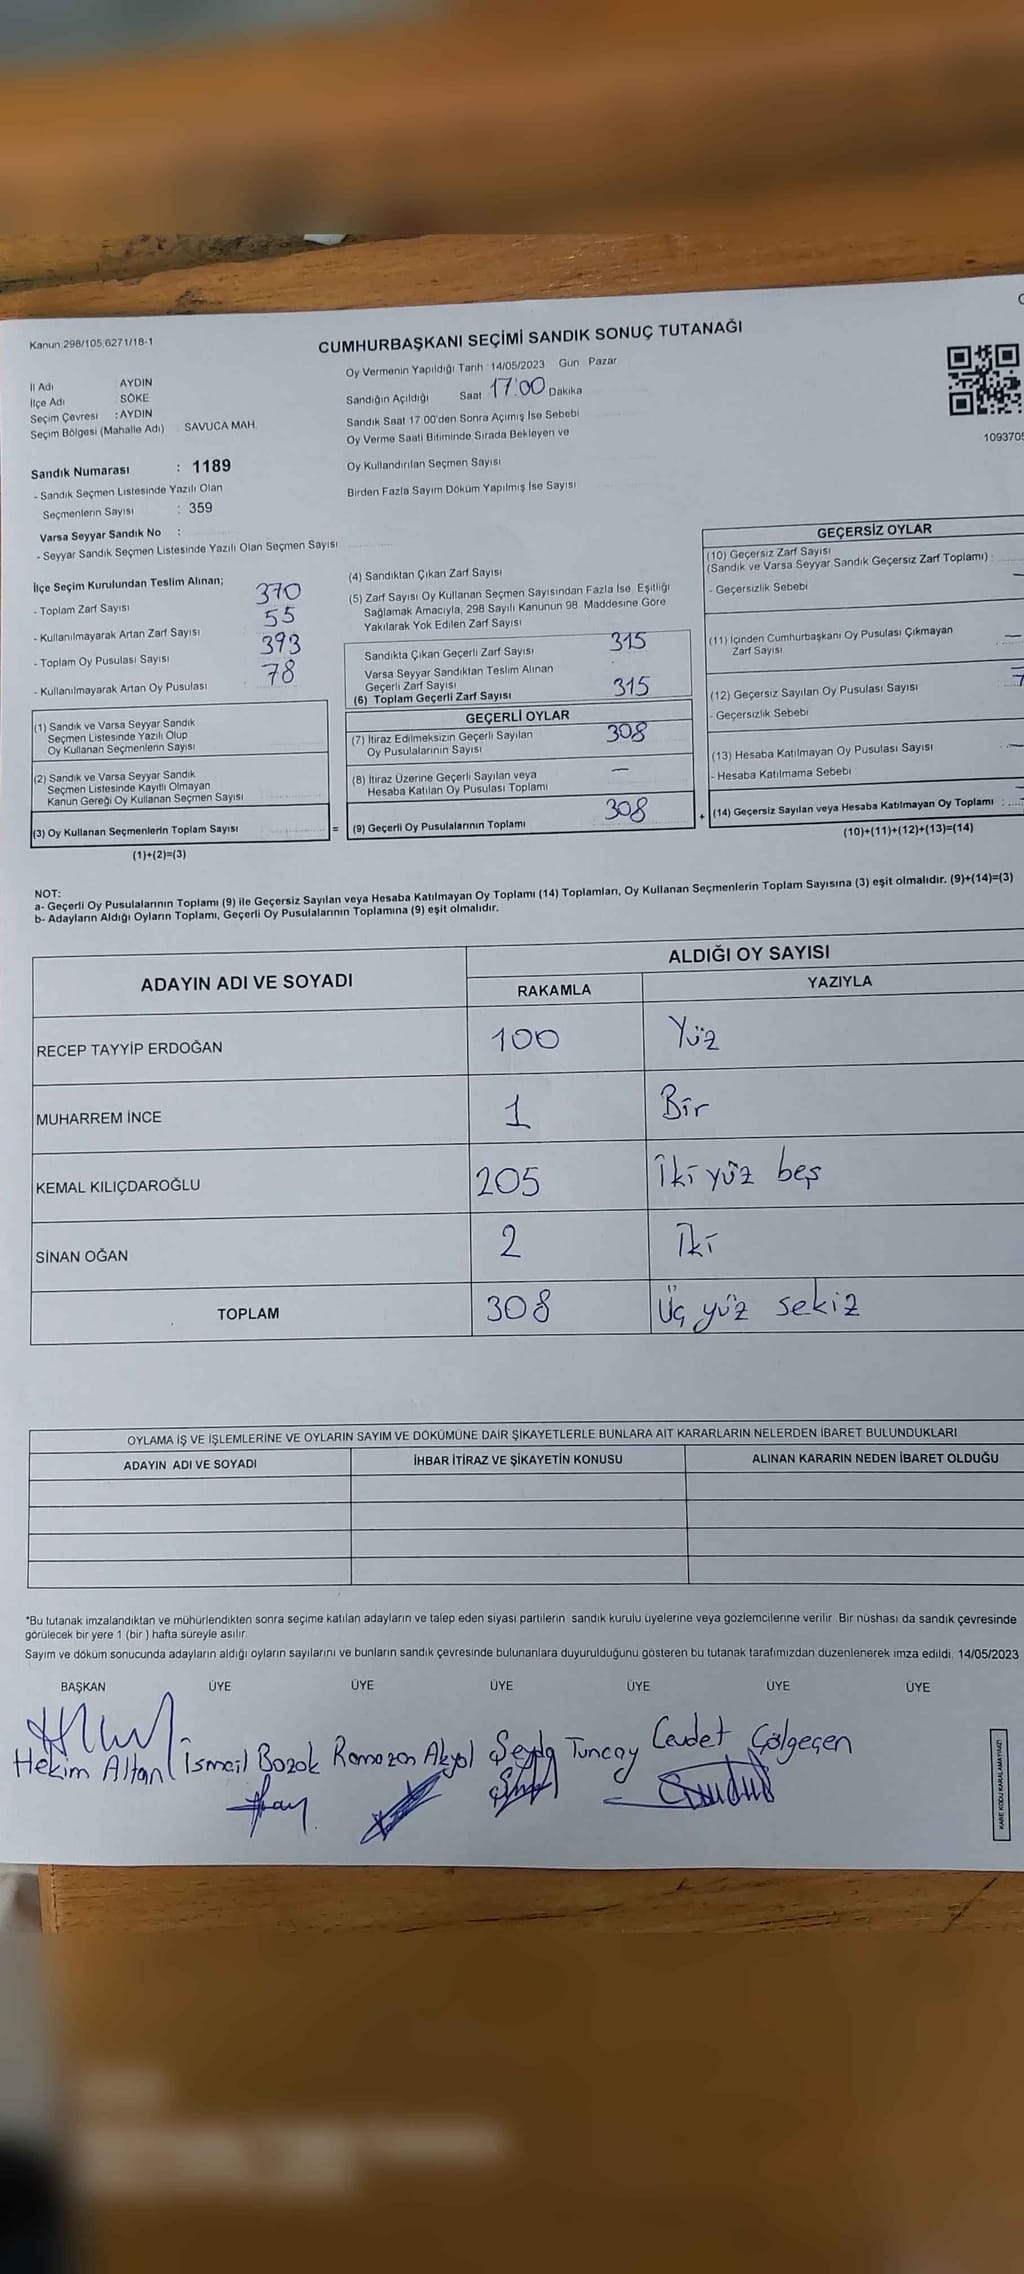 Kanun 298/105 6271/18-1
CUMHURBAŞKANI SEÇİMİ SANDIK SONUÇ TUTANAĞI
İl Adı : AYDIN
İlçe Adı : SÖKE
Seçim Çevresi : AYDIN
Seçim Bölgesi (Mahalle Adı) : SAVUCA MAH.
Oy Vermenin Yapıldığı Tarih 14/05/2023 Gün Pazar
Sandığın Açıldığı Saat 17:00 Dakika
Sandık Saat 17 00'den Sonra Açımış İse Sebebi
Oy Verme Saati Bitiminde Sırada Bekleyen ve
Oy Kullandırılan Seçmen Sayısı
Birden Fazla Sayım Döküm Yapılmış İse Sayısı
109370
Sandık Numarası : 1189
- Sandık Seçmen Listesinde Yazılı Olan
Seçmenlerin Sayısı : 359
Varsa Seyyar Sandık No :
- Seyyar Sandık Seçmen Listesinde Yazılı Olan Seçmen Sayısı
İlçe Seçim Kurulundan Teslim Alınan;
- Toplam Zarf Sayısı 370
- Kullanılmayarak Artan Zarf Sayısı 55
- Toplam Oy Pusulası Sayısı 393
- Kullanılmayarak Artan Oy Pusulası 78
(1) Sandık ve Varsa Seyyar Sandık
Seçmen Listesinde Yazılı Olup
Oy Kullanan Seçmenlerin Sayısı
(2) Sandık ve Varsa Seyyar Sandık
Seçmen Listesinde Kayıtlı Olmayan
Kanun Gereği Oy Kullanan Seçmen Sayısı
(3) Oy Kullanan Seçmenlerin Toplam Sayısı =
(1)+(2)=(3)
(4) Sandıktan Çıkan Zarf Sayısı
(5) Zarf Sayısı Oy Kullanan Seçmen Sayısından Fazla İse, Eşitliği
Sağlamak Amacıyla, 298 Sayılı Kanunun 98. Maddesine Göre
Yakılarak Yok Edilen Zarf Sayısı
Sandıkta Çıkan Geçerli Zarf Sayısı 315
Varsa Seyyar Sandıktan Teslim Alınan
Geçerli Zarf Sayısı
(6) Toplam Geçerli Zarf Sayısı 315
GEÇERLİ OYLAR
(7) İtiraz Edilmeksizin Geçerli Sayılan 308
Oy Pusulalarının Sayısı
(8) İtiraz Üzerine Geçerli Sayılan veya —
Hesaba Katılan Oy Pusulası Toplamı
(9) Geçerli Oy Pusulalarının Toplamı 308 +
GEÇERSİZ OYLAR
(10) Geçersiz Zarf Sayısı
(Sandık ve Varsa Seyyar Sandık Geçersiz Zarf Toplamı) :
- Geçersizlik Sebebi
(11) İçinden Cumhurbaşkanı Oy Pusulası Çıkmayan —
Zarf Sayısı
(12) Geçersiz Sayılan Oy Pusulası Sayısı
- Geçersizlik Sebebi
(13) Hesaba Katılmayan Oy Pusulası Sayısı
- Hesaba Katılmama Sebebi
(14) Geçersiz Sayılan veya Hesaba Katılmayan Oy Toplamı :
(10)+(11)+(12)+(13)=(14)
NOT:
a- Geçerli Oy Pusulalarının Toplamı (9) ile Geçersiz Sayılan veya Hesaba Katılmayan Oy Toplamı (14) Toplamları, Oy Kullanan Seçmenlerin Toplam Sayısına (3) eşit olmalıdır. (9)+(14)=(3)
b- Adayların Aldığı Oyların Toplamı, Geçerli Oy Pusulalarının Toplamına (9) eşit olmalıdır.
ADAYIN ADI VE SOYADI
ALDIĞI OY SAYISI
RAKAMLA YAZIYLA
RECEP TAYYİP ERDOĞAN 100 Yüz
MUHARREM İNCE 1 Bir
KEMAL KILIÇDAROĞLU 205 İki yüz beş
SİNAN OĞAN 2 İki
TOPLAM 308 Üç yüz sekiz
OYLAMA İŞ VE İŞLEMLERİNE VE OYLARIN SAYIM VE DÖKÜMÜNE DAİR ŞİKAYETLERLE BUNLARA AİT KARARLARIN NELERDEN İBARET BULUNDUKLARI
ADAYIN ADI VE SOYADI İHBAR İTİRAZ VE ŞİKAYETİN KONUSU ALINAN KARARIN NEDEN İBARET OLDUĞU
*Bu tutanak imzalandıktan ve mühürlendikten sonra seçime katılan adayların ve talep eden siyasi partilerin sandık kurulu üyelerine veya gözlemcilerine verilir. Bir nüshası da sandık çevresinde
görülecek bir yere 1 (bir ) hafta süreyle asılır.
Sayım ve döküm sonucunda adayların aldığı oyların sayılarını ve bunların sandık çevresinde bulunanlara duyurulduğunu gösteren bu tutanak tarafımızdan düzenlenerek imza edildi. 14/05/2023
BAŞKAN ÜYE ÜYE ÜYE ÜYE ÜYE ÜYE
Hekim Altan İsmail Bozok Ramazan Akyol Şeyda Tuncay Cevdet Çölgeçen
KARE KODU KARALAMAYINIZ!